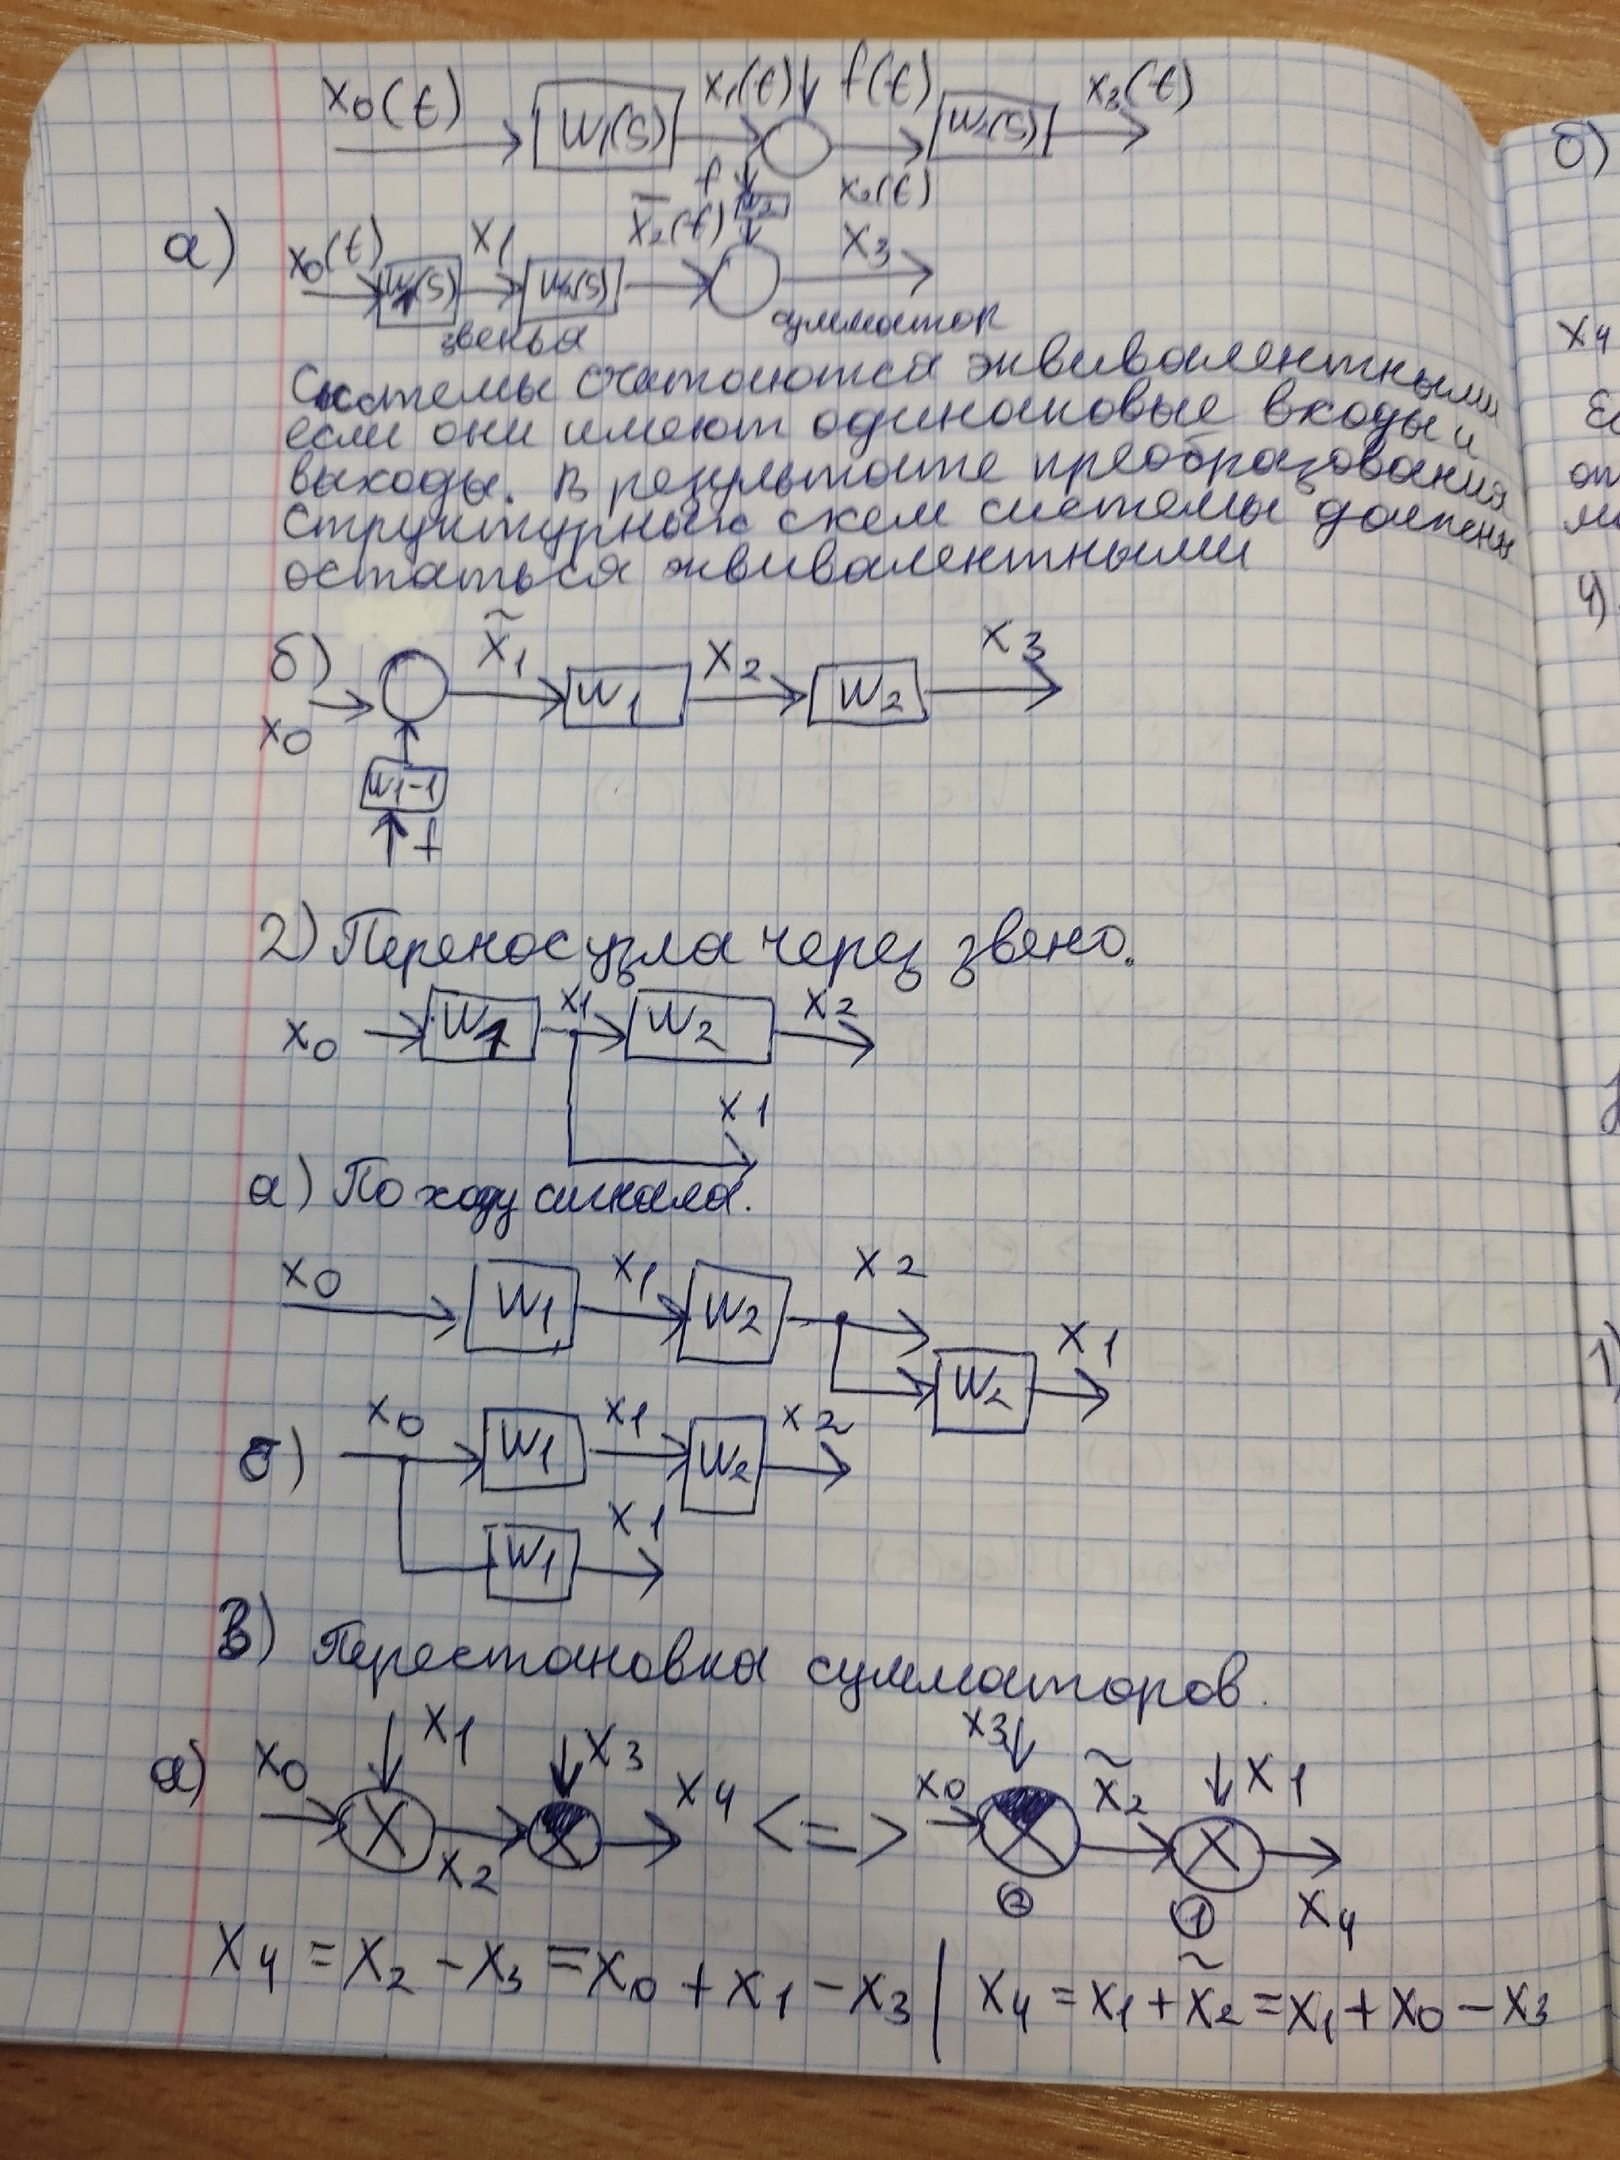 x₀(t) W₁(s) x₁(t) f(t) W₂(s) x₃(t)
x₂(t)
f W₂
а) x₀(t) W₁(s) x₁ W₂(s) x̄₂(t) x₃
звенья сумматор
Системы считаются эквивалентными
если они имеют одинаковые входы и
выходы. В результате преобразования
структурных схем системы должны
остаться эквивалентными
б) x̃₁ W₁ x₂ W₂ x₃
x₀
W₁-1
f
2) Перенос узла через звено.
x₀ W₁ x₁ W₂ x₂
x₁
а) По ходу сигнала.
x₀ W₁ x₁ W₂ x₂
W₂ x₁
б) x₀ W₁ x₁ W₂ x₂
W₁ x₁
В) Перестановка сумматоров.
а) x₀ x₁ x₂ x₃ x₄ <=> x₀ x₃ x̃₂ x₁ x₄
② ①
x₄ = x₂ - x₃ = x₀ + x₁ - x₃ | x₄ = x₁ + x̃₂ = x₁ + x₀ - x₃
б)
x₄
4)
1)